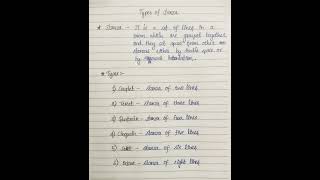 Types of Stanza
* Stanza - It is a set of lines in a
poem which are grouped together
and they set apart from other
stanzas either by double space or
by indentation.
* Types :-
1) Couplet - stanza of two lines
2) Tercet - stanza of three lines
3) Quatrain - stanza of four lines
4) stanza of five lines
5) stanza of six lines
6) Octave - stanza of eight lines